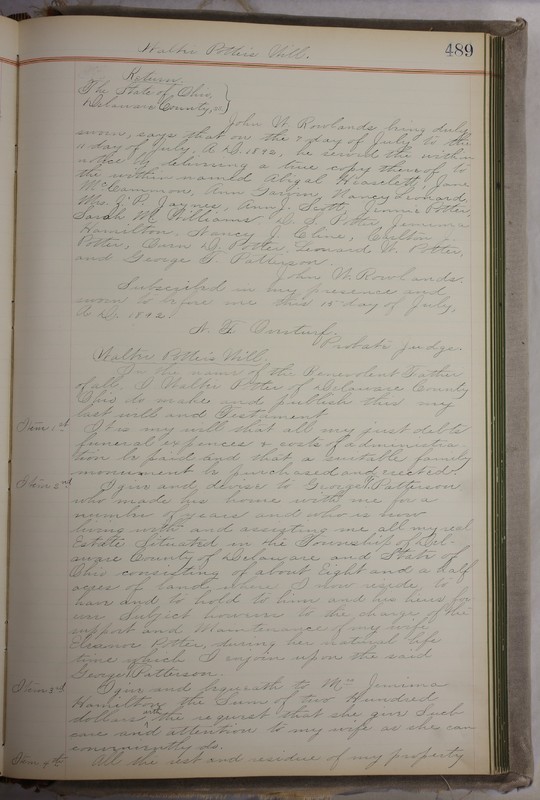 Walter Potter's Will.
489
Return.
The State of Ohio,
Delaware County, ss
John W. Rowlands being duly
sworn, says that on the 7 day of July to the
11 day of July, A.D. 1892, he served the within
notice by delivering a true copy thereof to
the within named Abigal Heaselett, Jane
McCammon, Ann Gavin, Nancy Leonard,
Mrs. J. P. Jaynes, Ann J. Scott, Jennie Potter,
Sarah McWilliams, D. L. Potter, Jemima
Hamilton, Nancy J. Cline, Carlton
Potter, Orrin D. Potter, Leonard W. Potter,
and George T. Patterson.
John W. Rowlands.
Subscribed in my presence and
sworn to before me this 15 day of July,
A.D. 1892
Probate Judge.
Walter Potter's Will.
In the name of the Benevolent Father
of all, I Walter Potter of Delaware County
Ohio do make and publish this my
last will and Testament.
Item 1st
It is my will that all my just debts
funeral expences & costs of administra-
tion be paid and that a suitable family
monument be purchased and erected.
Item 2nd
I give and devise to George T. Patterson
who made his home with me for a
number of years and who is now
living with and assisting me all my real
Estate Situated in the Township of Del-
aware County of Delaware and State of
Ohio consisting of about Eight and a half
acres of land, where I now reside, to
have and to hold to him and his heirs for
ever Subject however to the charge of the
support and Maintenance of my wife
Eleanor Potter, during her natural life
time which I enjoin upon the said
George T. Patterson.
Item 3rd
I give and bequeath to Mrs Jemima
Hamilton the Sum of two Hundred
dollars with the request that she give Such
care and attention to my wife as she can
conveniently do.
Item 4th
All the rest and residue of my property